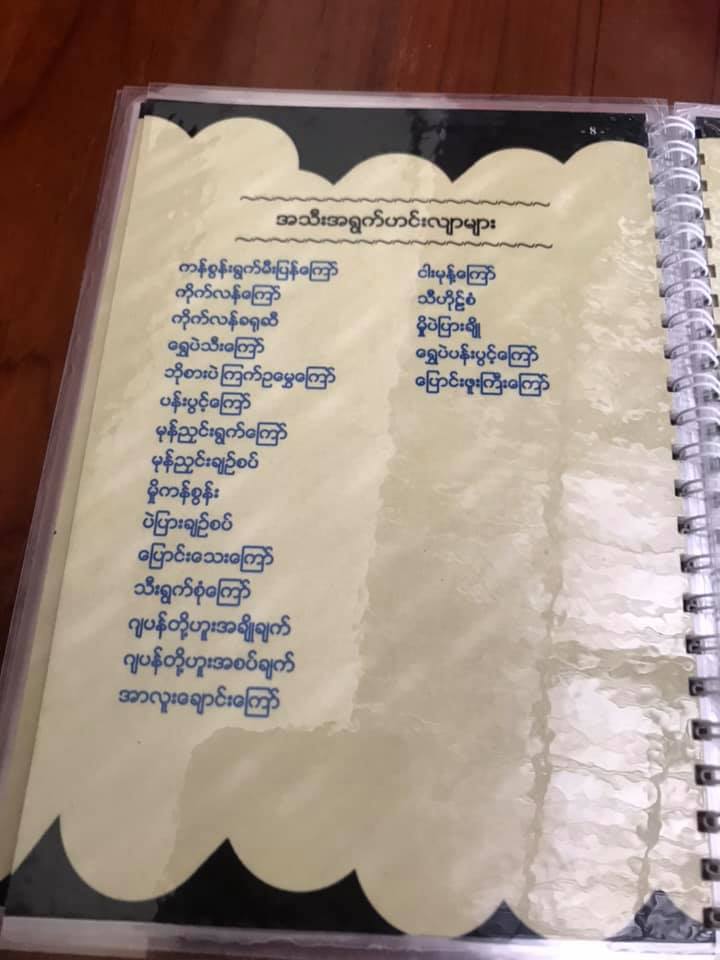 - 8 -
အသီးအရွက်ဟင်းလျာများ
ကန်စွန်းရွက်မီးပြန်ကြော်
ကိုက်လန်ကြော်
ကိုက်လန်ခရုဆီ
ရွှေပဲသီးကြော်
ဘိုစားပဲကြက်ဥမွှေကြော်
ပန်းပွင့်ကြော်
မုန်ညှင်းရွက်ကြော်
မုန်ညှင်းချဉ်စပ်
မှိုကန်စွန်း
ပဲပြားချဉ်စပ်
ပြောင်းသေးကြော်
သီးရွက်စုံကြော်
ဂျပန်တို့ဟူးအချိုချက်
ဂျပန်တို့ဟူးအစပ်ချက်
အာလူးချောင်းကြော်
ငါးမုန့်ကြော်
သီဟိုဠ်စံ
မှိုပဲပြားချို
ရွှေပဲပန်းပွင့်ကြော်
ပြောင်းဖူးကြီးကြော်